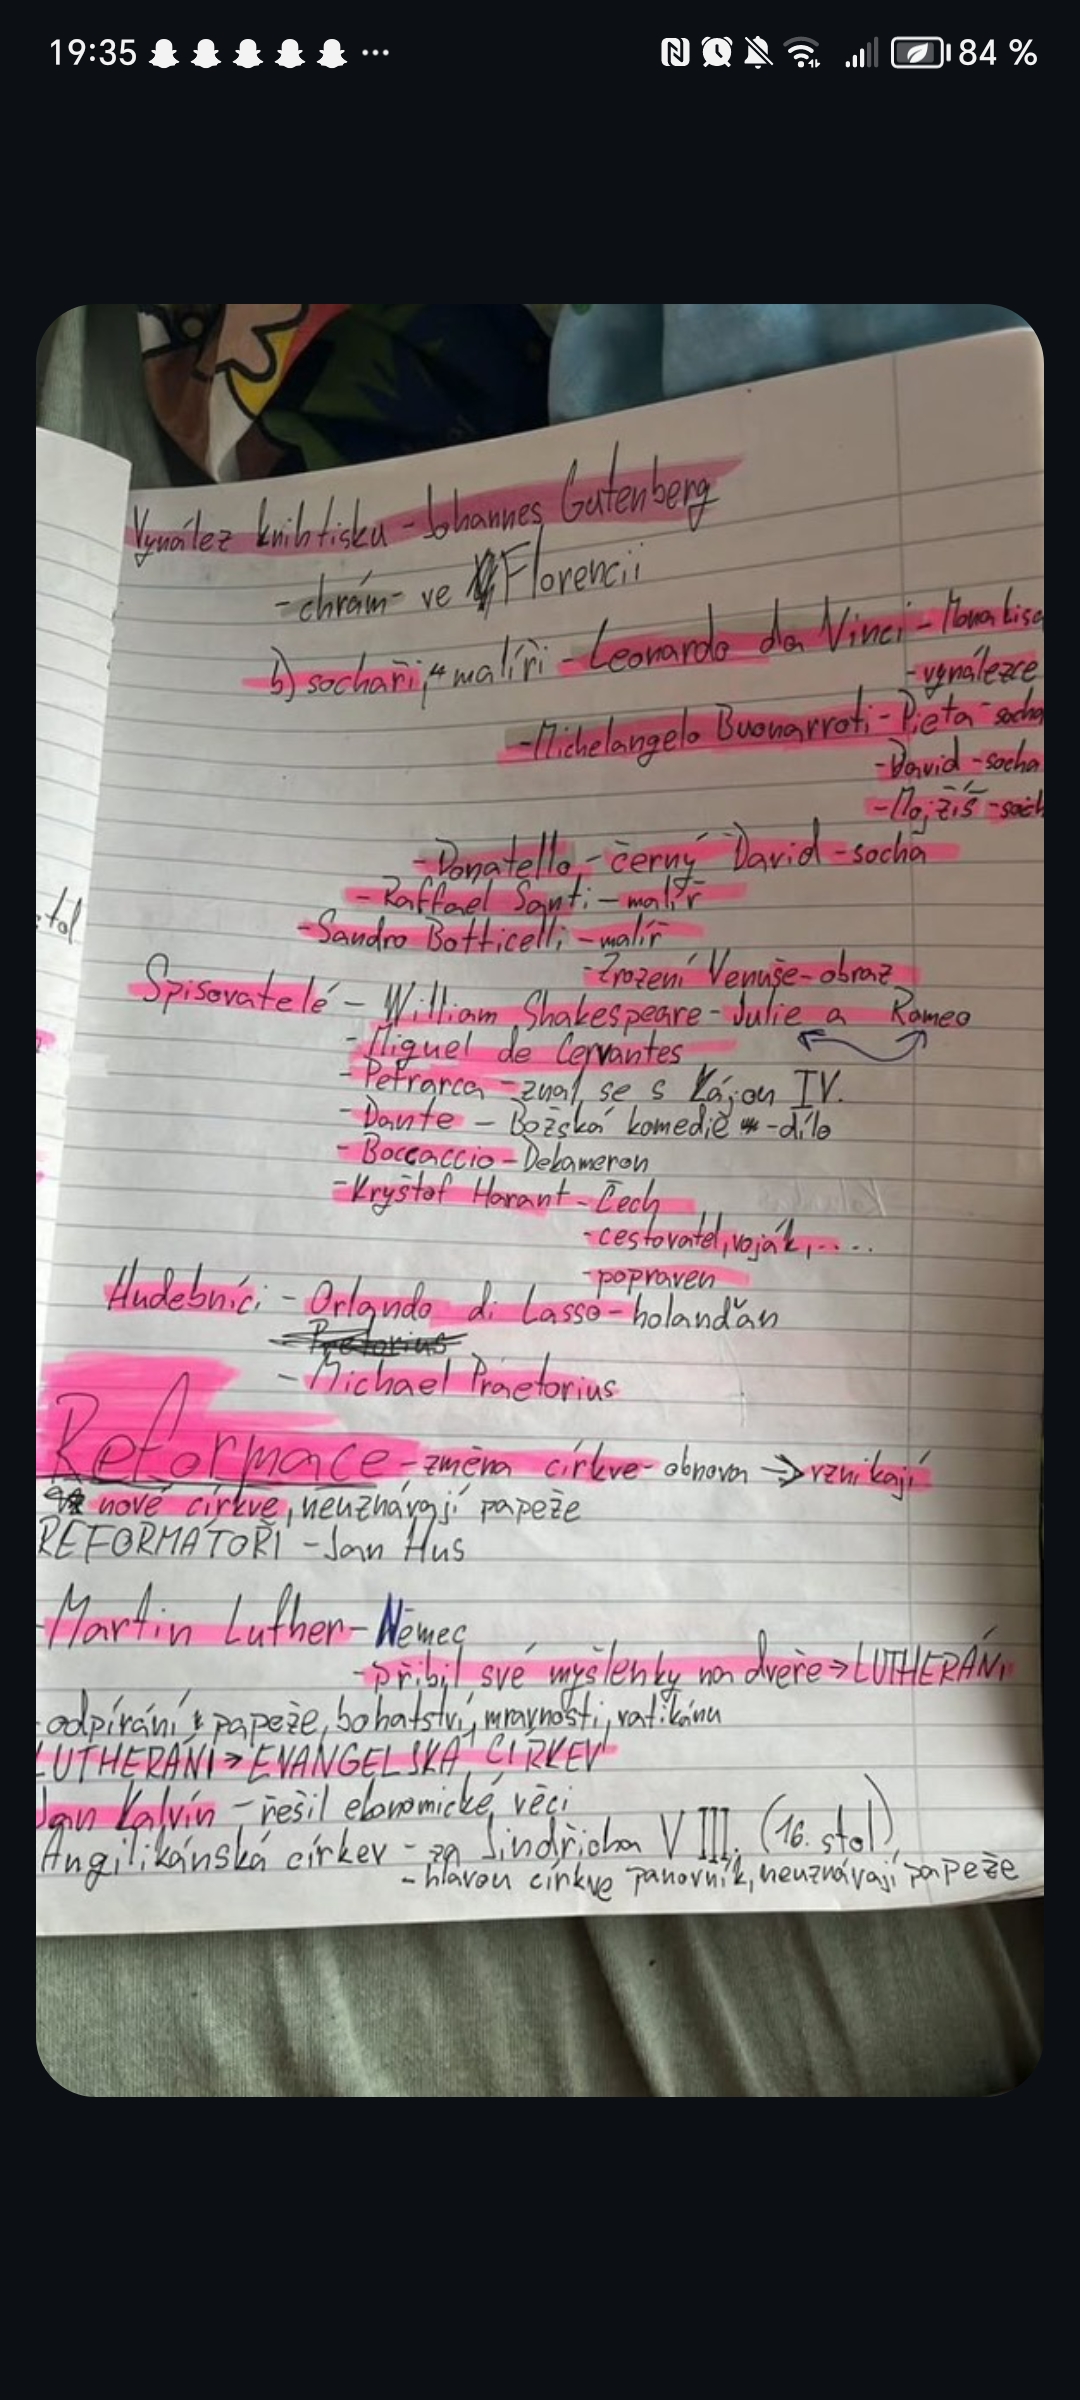 19:35 84 %
Vynález knihtisku - Johannes Gutenberg
- chrám - ve Florencii
b) sochaři, malíři - Leonardo da Vinci - Mona Lisa
- vynálezce
- Michelangelo Buonarroti - Pieta - socha
- David - socha
- Mojžíš - soch
- Donatello - černý David - socha
- Raffael Santi - malíř
- Sandro Botticelli - malíř
- Zrození Venuše - obraz
Spisovatelé - William Shakespeare - Julie a Romeo
- Miguel de Cervantes
- Petrarca - znal se s IV.
- Dante - Božská komedie - dílo
- Boccaccio - Dekameron
- Kryštof Harant - Čech
- cestovatel, voják, ....
- popraven
Hudebníci - Orlando di Lasso - holanďan
Pretorius
- Michael Praetorius
Reformace - změna církve - obnova => vznikají
nové církve, neuznávají papeže
REFORMÁTOŘI - Jan Hus
Martin Luther - Němec
- přibil své myšlenky na dveře → LUTHERÁNI
- odpírání papeže, bohatství, mravnosti, vatikánu
LUTHERÁNI → EVANGELSKÁ CÍRKEV
Jan Kalvín - řešil ekonomické věci
Angilikánská církev - za Jindřicha VIII. (16. stol)
- hlavou církve panovník, neuznávají papeže
stol